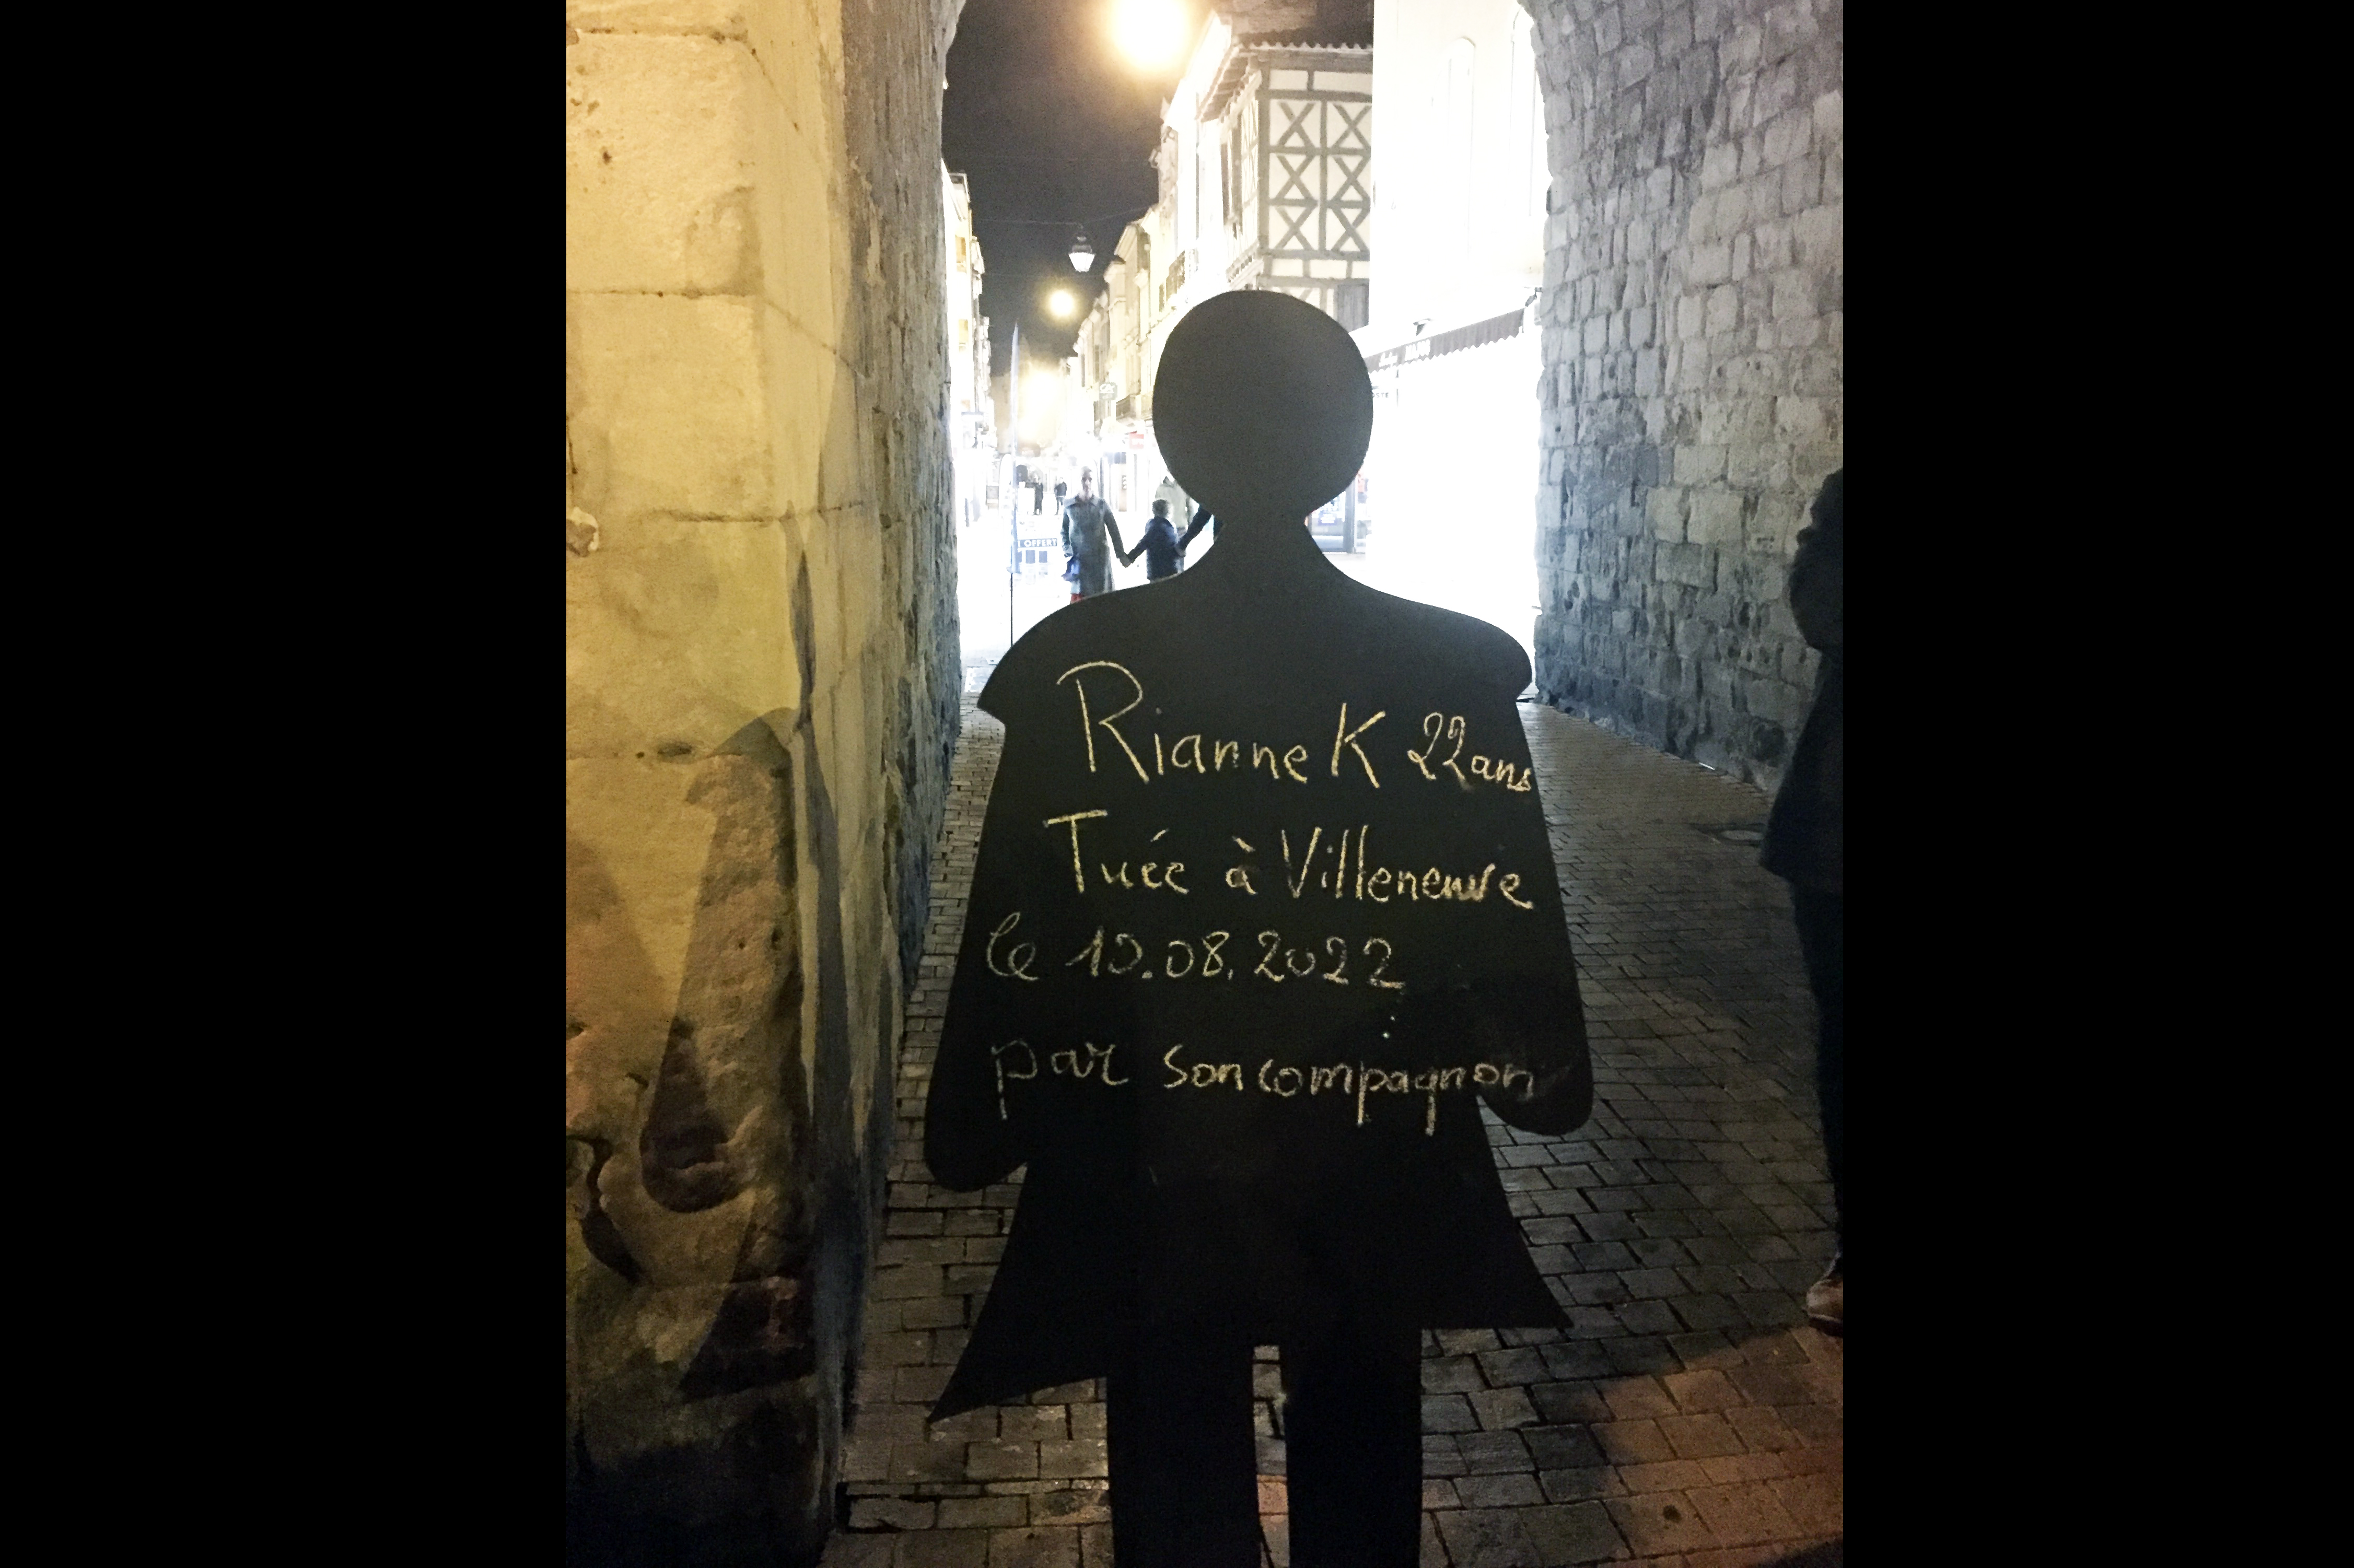 OFFERT
Rianne K 22ans
Tuée à Villeneuve
le 10.08.2022
par son compagnon